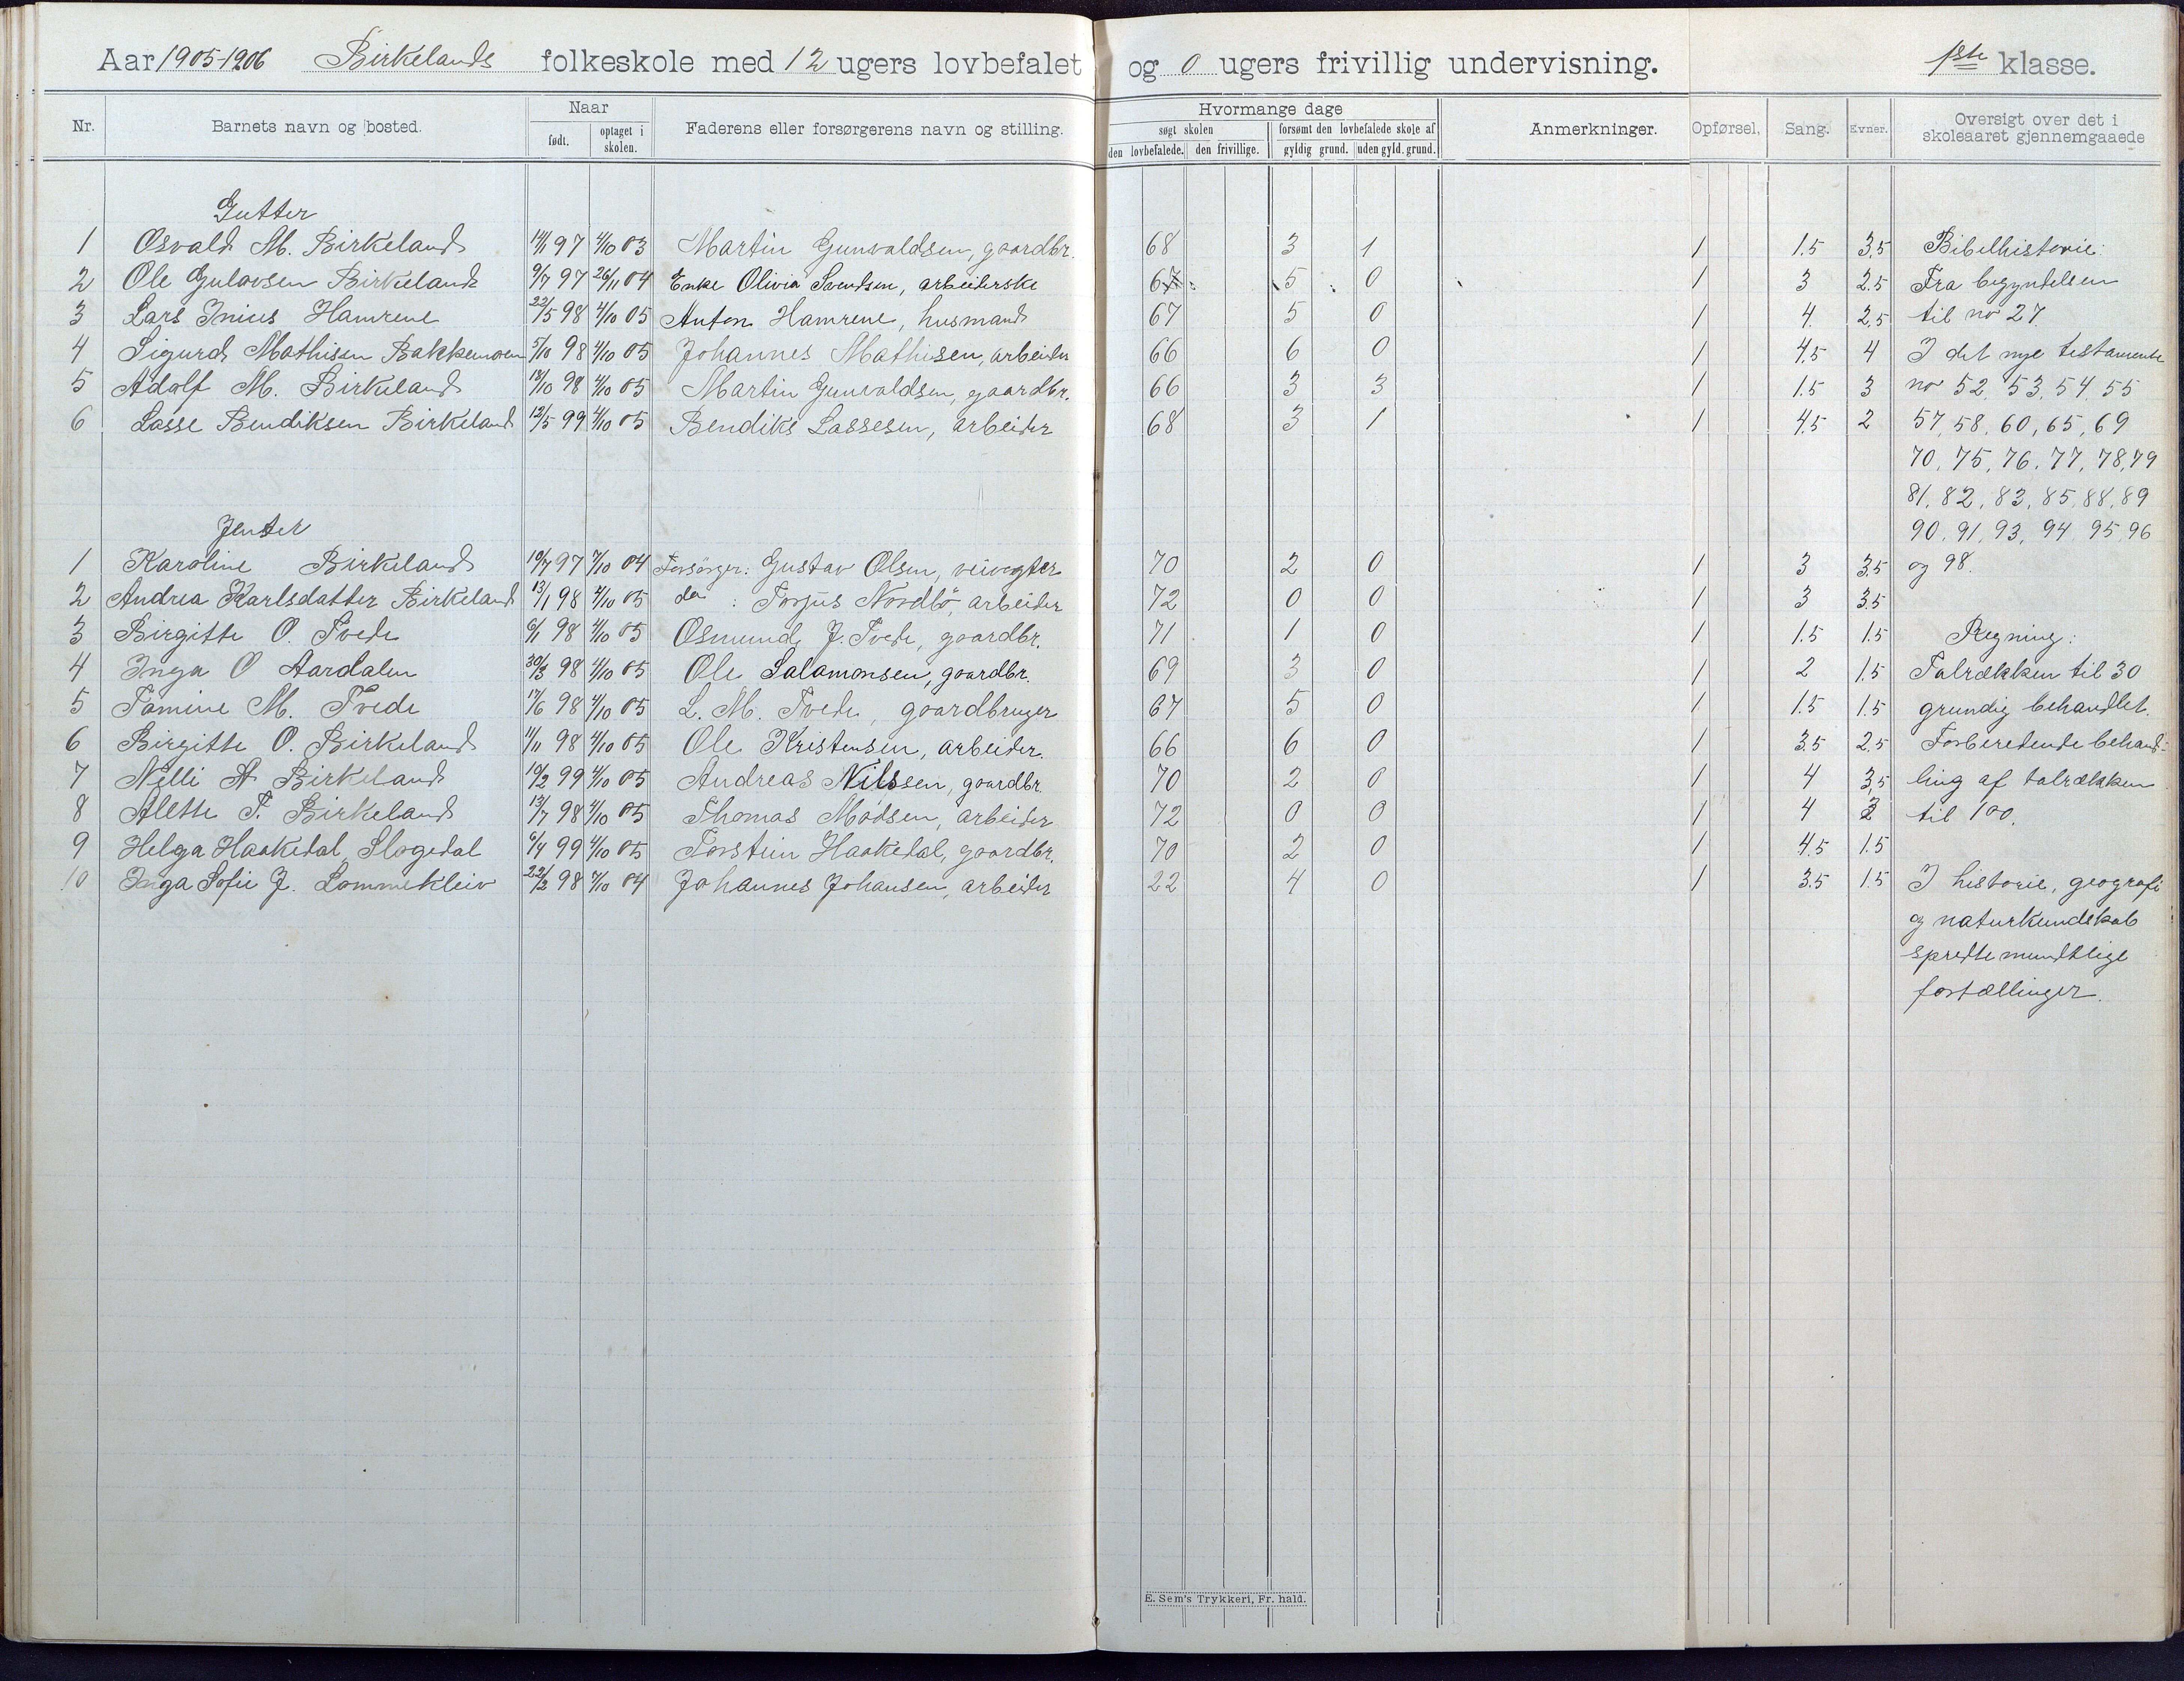 Aar 1905-1906 Birkelands folkeskole med 12 ugers lovbefalet og 0 ugers frivillig undervisning. 1ste klasse.
Nr. Barnets navn og bosted. Naar født. optaget i skolen. Faderens eller forsørgerens navn og stilling. Hvormange dage søgt skolen den lovbefalede. den frivillige. forsømt den lovbefalede skole af gyldig grund. uden gyld. grund. Anmerkninger. Opførsel. Sang. Evner. Oversigt over det i skoleaaret gjennemgaaede
Gutter
1 Osvald M. Birkeland 14/11 97 4/10 03 Martin Gunvaldsen, gaardbr. 68 3 1 1 1.5 3.5 Bibelhistorie:
2 Ole Gulovsen Birkeland 9/7 97 26/11 04 Enke Olivia Svendsen, arbeiderske 67 5 0 1 3 2.5 Fra begyndelsen
3 Lars Inius Hamrene 22/5 98 4/10 05 Anton Hamrene, husmand 67 5 0 1 4 2.5 til no 27.
4 Sigurd Mathisen Bakkemoen 5/10 98 4/10 05 Johannes Mathisen, arbeider 66 6 0 1 4.5 4 I det nye testamente
5 Adolf M. Birkeland 18/10 98 4/10 05 Martin Gunvaldsen, gaardbr. 66 3 3 1 1.5 3 no 52, 53, 54, 55
6 Lasse Bendiksen Birkeland 12/5 99 4/10 05 Bendiks Lassesen, arbeider 68 3 1 1 4.5 2 57, 58, 60, 65, 69
70, 75, 76, 77, 78, 79
81, 82, 83, 85, 88, 89
Jenter 90, 91, 93, 94, 95, 96
1 Karoline Birkeland 10/7 97 7/10 04 Forsörger: Gustav Olsen, veivogter 70 2 0 1 3 3.5 og 98.
2 Andrea Karlsdatter Birkeland 13/1 98 4/10 05 do : Torjus Nordbö, arbeider 72 0 0 1 3 3.5
3 Birgitte O. Tvede 6/1 98 4/10 05 Osmund J. Tvede, gaardbr. 71 1 0 1 1.5 1.5 Regning:
4 Inga O Aardalen 30/3 98 4/10 05 Ole Salamonsen, gaardbr. 69 3 0 1 2 1.5 Talrækken til 30
5 Tomine M. Tvede 17/6 98 4/10 05 L. M. Tvede, gaardbruger 67 5 0 1 1.5 1.5 grundig behandlet.
6 Birgitte O. Birkeland 11/11 98 4/10 05 Ole Kristensen, arbeider. 66 6 0 1 3.5 2.5 Forberedende behand-
7 Nelli A Birkeland 10/2 99 4/10 05 Andreas Nilssen, gaardbr. 70 2 0 1 4 3.5 ling af talrækken
8 Alette T. Birkeland 13/7 98 4/10 05 Thomas Madsen, arbeider 72 0 0 1 4 til 100.
9 Helga Haakedal, Slogedal 6/4 99 4/10 05 Torstein Haakedal, gaardbr. 70 2 0 1 4.5 1.5
10 Inga Sofie J. Lommekleiv 22/3 98 7/10 04 Johannes Johansen, arbeider 22 4 0 1 3.5 1.5 I historie, geografi
og naturkundskab
spredte mundtlige
fortællinger.
E. Sem's Trykkeri, Fr. hald.